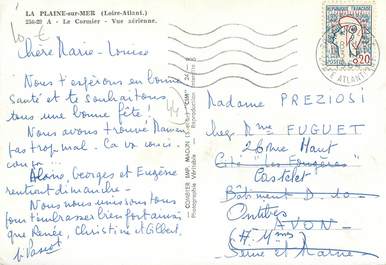 10 €
LA PLAINE-sur-MER (Loire-Atlant.)
256-29 A - Le Cormier - Vue aérienne.
Chère Marie-Louise
Nous t'espérons en bonne
santé et te souhaitons
tous une bonne fête!
Nous avons trouvé Maman
pas trop mal. Ca va couci
couça... Alain, Georges et Eugène
rentront dimanche -
Nous nous unissons tous
pour t'embrasser bien fort ainsi
que Renée, Christine et Gilbert.
44
COMBIER IMP. MACON
Photographie Véritable
REPUBLIQUE FRANÇAISE
0,20
Madame PREZIOSI
chez Mme FUGUET
26 Rue Haut
Cité "les Fougères"
Castelet
Bâtiment D. 10
Antibes
AVON
(A-Mmes)
Seine et Marne